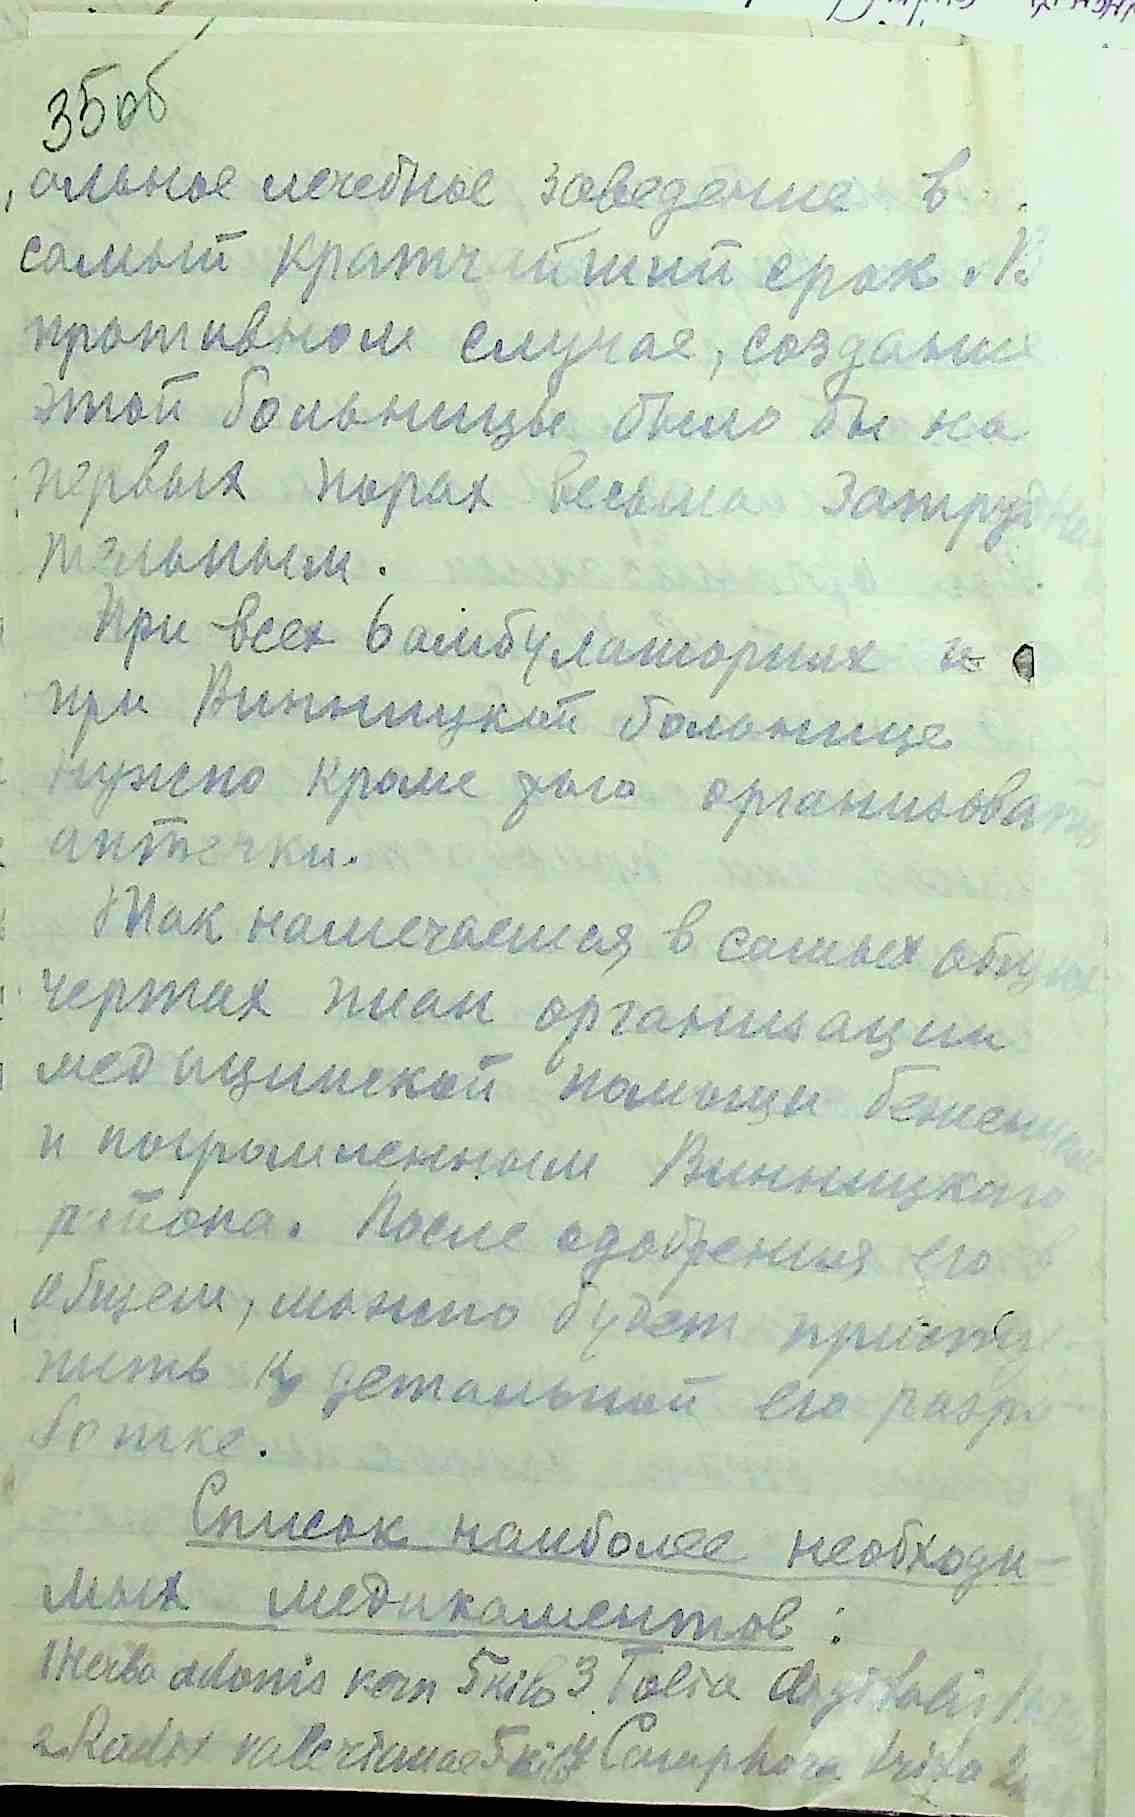 35об
альное лечебное заведение в
самый кратчайший срок. В
противном случае, создание
этой больницы было бы на
первых порах весьма затрудни
тельным.
При всех 6 амбулаториях и
при Винницкой больнице
нужно кроме того организовать
аптечки.
Так намечается, в самых общих
чертах план организации
медицинской помощи беженцам
и погромленным Винницкого
района. После одобрения его в
общем, можно будет присту-
пить к детальной его разра-
ботке.
Список наиболее необходи-
мых медикаментов:
1 Herba adonis 5 kilo 3 Folia digitalis
2 Radix valerianae 5 kil 4 Camphora trita